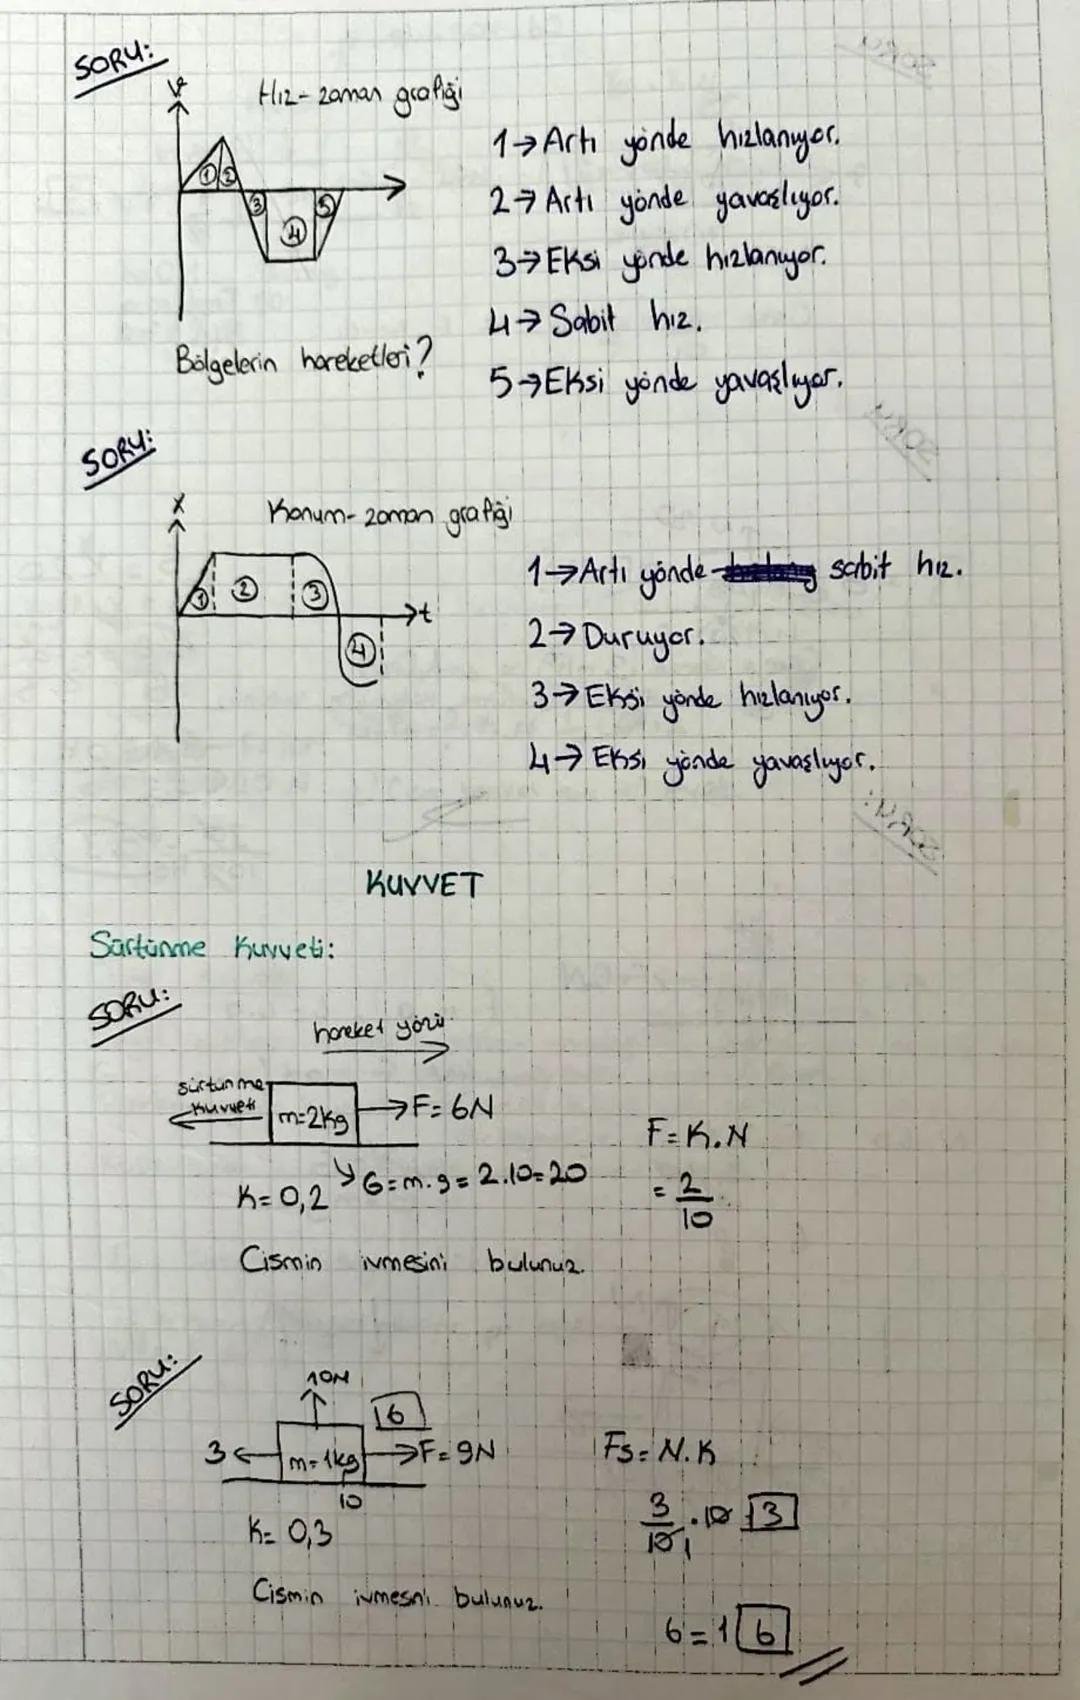 SORU:
V
Hız-zaman grafiği
1 2 3 4 5
Bölgelerin hareketleri?
1→Artı yönde hızlanıyor.
2→Artı yönde yavaşlıyor.
3→Eksi yönde hızlanıyor.
4→Sabit hız.
5→Eksi yönde yavaşlıyor.
SORU:
X
Konum-zaman grafiği
1 2 3 4
t
1→Artı yönde sabit hız.
2→Duruyor.
3→Eksi yönde hızlanıyor.
4→Eksi yönde yavaşlıyor.
KUVVET
Sürtünme Kuvveti:
SORU:
hareket yönü
sürtünme
kuvveti
m=2kg
→F=6N
K=0,2
G=m.g=2.10=20
Cismin ivmesini bulunuz.
F=K.N
= 2/10
SORU:
10N
6
3 ← m=1kg →F=9N
10
K=0,3
Cismin ivmesni bulunuz.
Fs=N.K
3/10 .10 3
1
6=1 6